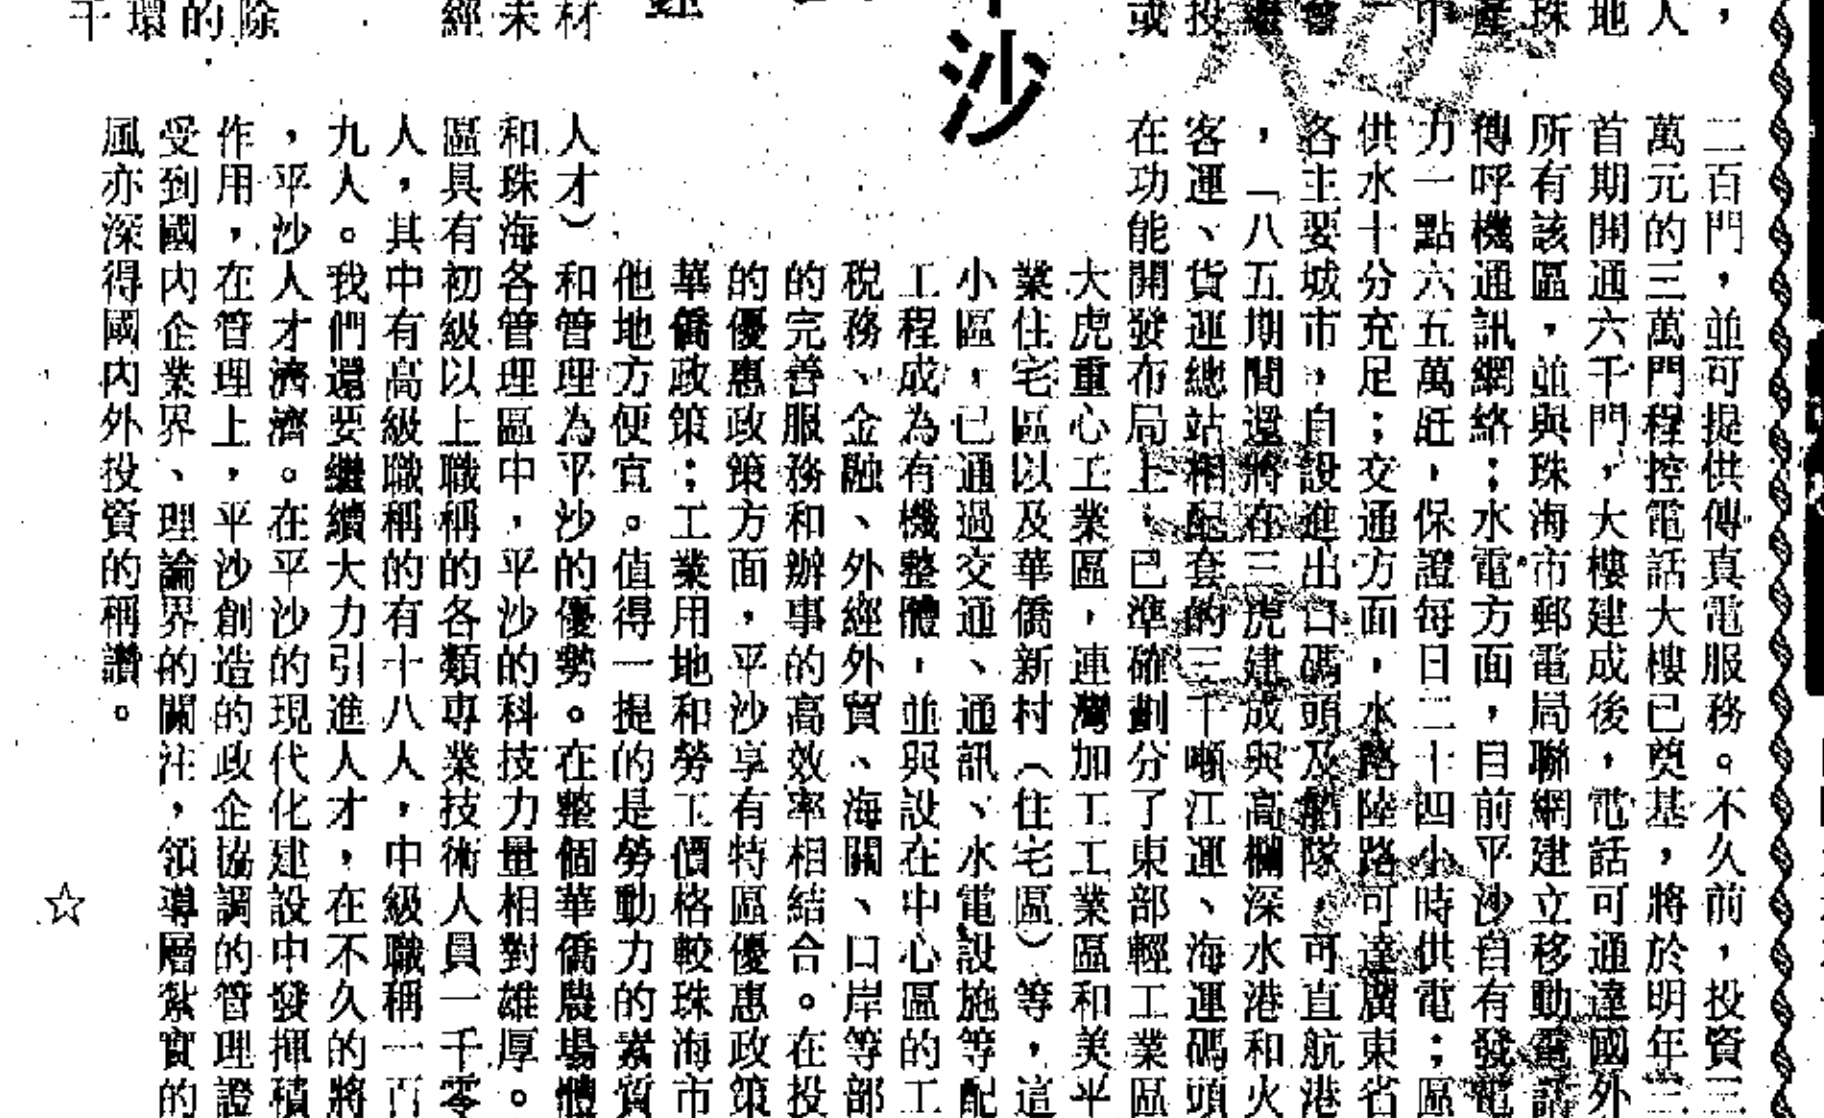 ，
人
地
珠
產
中
會
繼
投
或
沙
材
未
經
除
的
環
二百門，並可提供傳真電服務。不久前，投資三
萬元的三萬門程控電話大樓已奠基，將於明年三
首期開通六千門，大樓建成後，電話可通達國外
所有該區，並與珠海市郵電局聯網建立移動電話
傳呼機通訊網絡；水電方面，目前平沙自有發電
力一點六五萬瓩，保證每日二十四小時供電；區
供水十分充足；交通方面，水路陸路可達廣東省
各主要城市，自設進出口碼頭及船隊，可直航港
，「八五期間還將在三虎建成與高欄深水港和火
客運、貨運總站相配套的三千噸江運、海運碼頭
在功能開發布局上，已準確劃分了東部輕工業區
大虎重心工業區，連灣加工工業區和美平
業住宅區以及華僑新村（住宅區）等，這
小區，已通過交通、通訊、水電設施等配
工程成為有機整體，並與設在中心區的工
稅務、金融、外經外貿、海關、口岸等部
的完善服務和辦事的高效率相結合。在投
的優惠政策方面，平沙享有特區優惠政策
華僑政策；工業用地和勞工價格較珠海市
他地方便宜。值得一提的是勞動力的素質
人才）和管理為平沙的優勢。在整個華僑農場體
和珠海各管理區中，平沙的科技力量相對雄厚。
區具有初級以上職稱的各類專業技術人員一千零
人，其中有高級職稱的有十八人，中級職稱一百
九人。我們還要繼續大力引進人才，在不久的將
，平沙人才濟濟。在平沙的現代化建設中發揮積
作用，在管理上，平沙創造的政企協調的管理證
受到國內企業界、理論界的關注，領導層紮實的
風亦深得國內外投資的稱讚。
☆